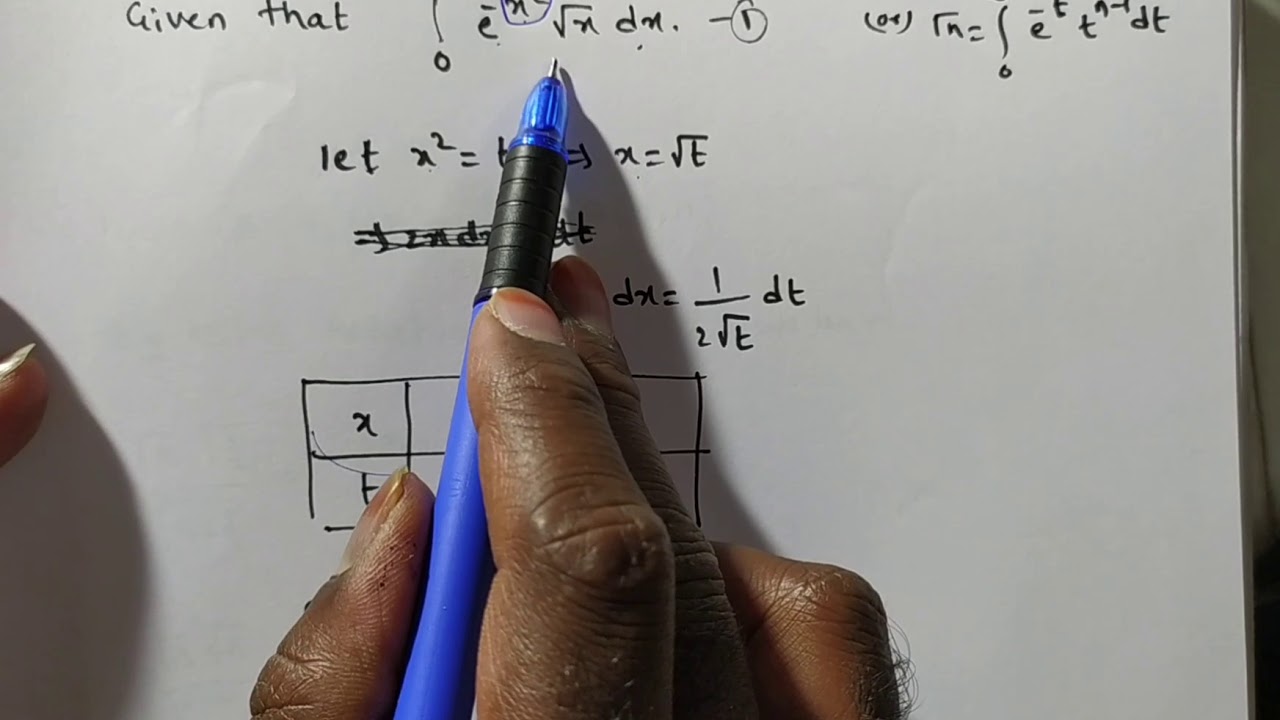 Given that ∫ 0 e^-x² √x dx. -①
(or) Γn = ∫ 0 e^-t t^n-1 dt
let x² = t ⇒ x = √t
⇒ 2x dx dt
dx = 1/2√t dt
x
t